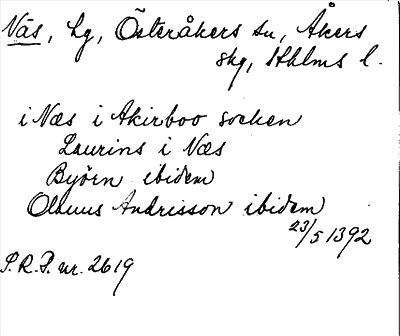 Näs, hg, Österåkers sn, Åkers
skg, Sthlms l.
i Næs i Akirboo socken
Laurins i Næs
Byörn ibidem
Olauus Andrisson ibidem
23/5 1392
P.R.P. nr. 2619